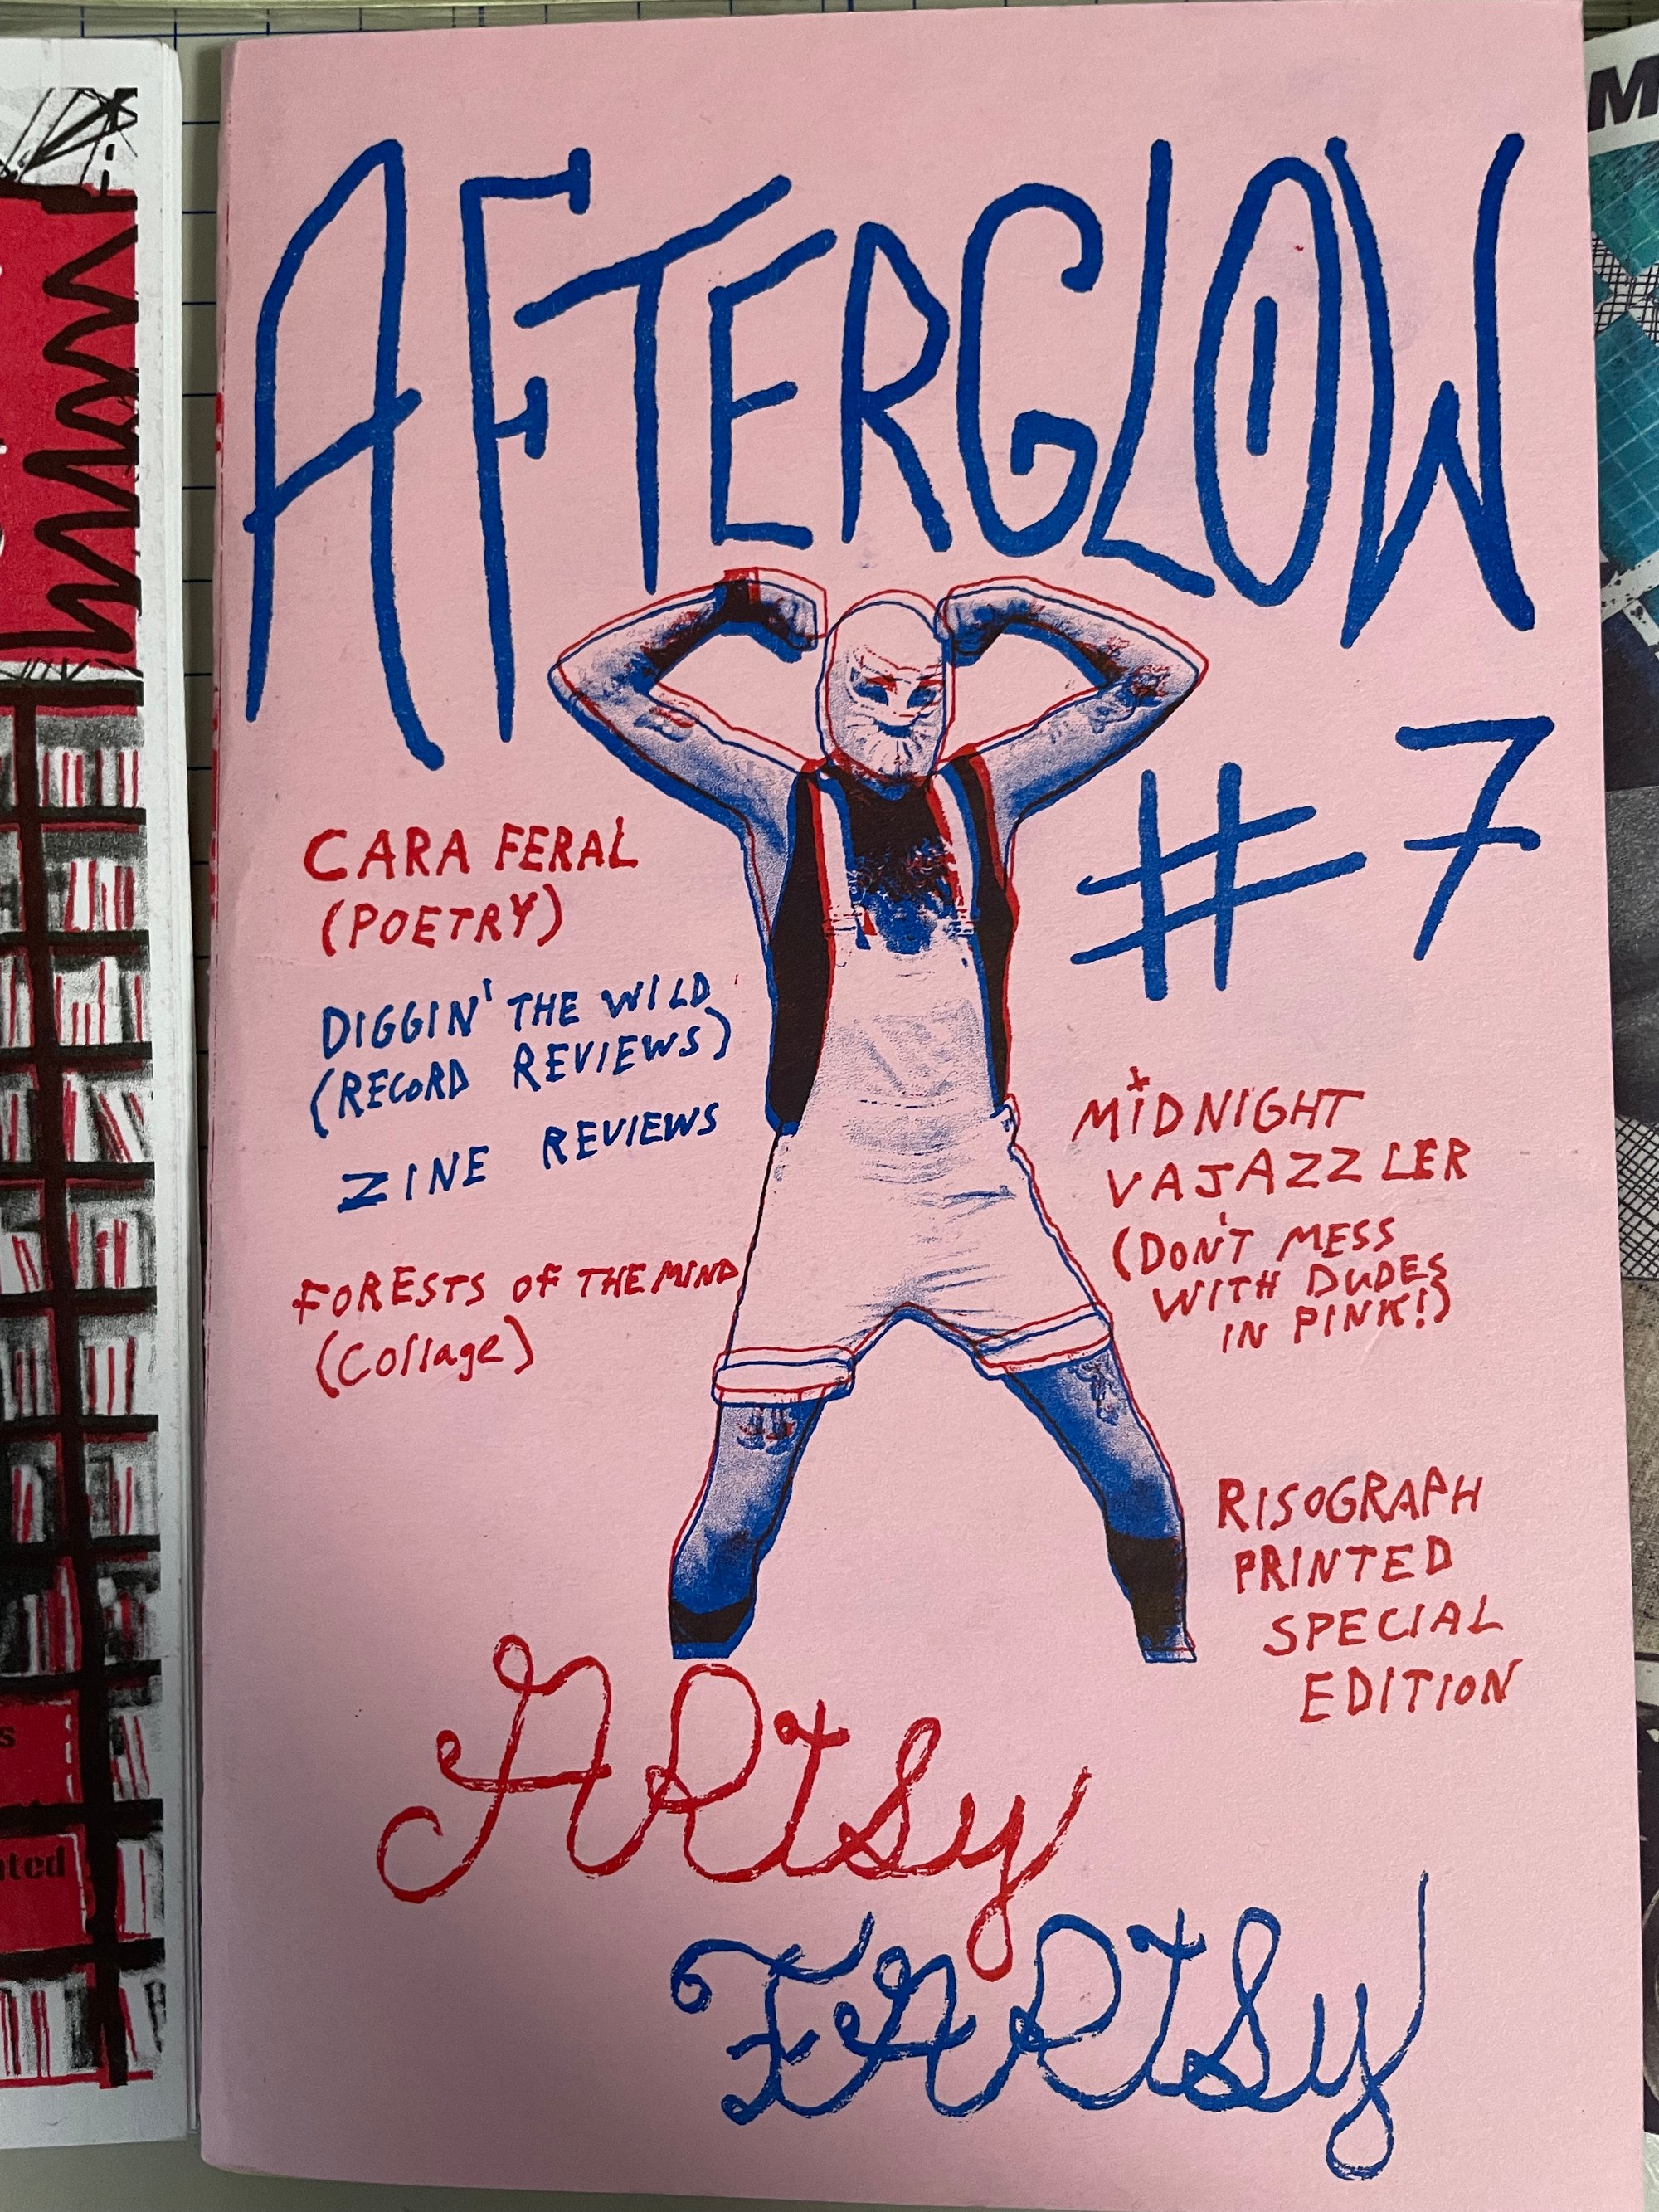 AFTERGLOW
#7
CARA FERAL
(POETRY)
DIGGIN' THE WILD
(RECORD REVIEWS)
ZINE REVIEWS
FORESTS OF THE MIND
(Collage)
MIDNIGHT
VAJAZZLER
(DON'T MESS
WITH DUDES
IN PINK!)
RISOGRAPH
PRINTED
SPECIAL
EDITION
ARtsy
FARtsy